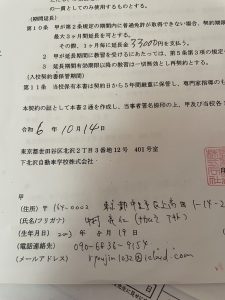 の一貫としてのみ使用するものとする。
(期間延長)
第10条 甲が第2条規定の期間内に普通免許が取得できない場合、契約期間
最大3ヶ月間延長を可とする。
その際、1ヶ月毎に延長金33000円を支払う。
2 甲が延長期間に教習を受けるにあたっては、第5条第3項の規定
3 延長期間有効期限以降の教習は一切無効とし再契約とする。
(入校契約書保管期間)
第11条 当校保有本書は契約日から5年間厳重に保管し、専門家指導のも
本契約の証として本書2通を作成し、当事者署名捺印の上、甲及び当校各1
令和 6年10月14日
東京都世田谷区北沢2丁目3番地12号 401号室
下北沢自動車学校株式会社
甲
(住所) 〒164-0002
(氏名/フリガナ)
(生年月日) 2003年8月19日
(電話連絡先) 090-6836-9154
(メールアドレス)